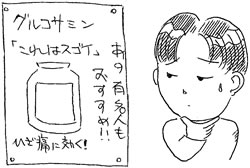 グルコサミン
「これはスゴイ」
あの有名人も
おすすめ!!
ひざ痛に効く!